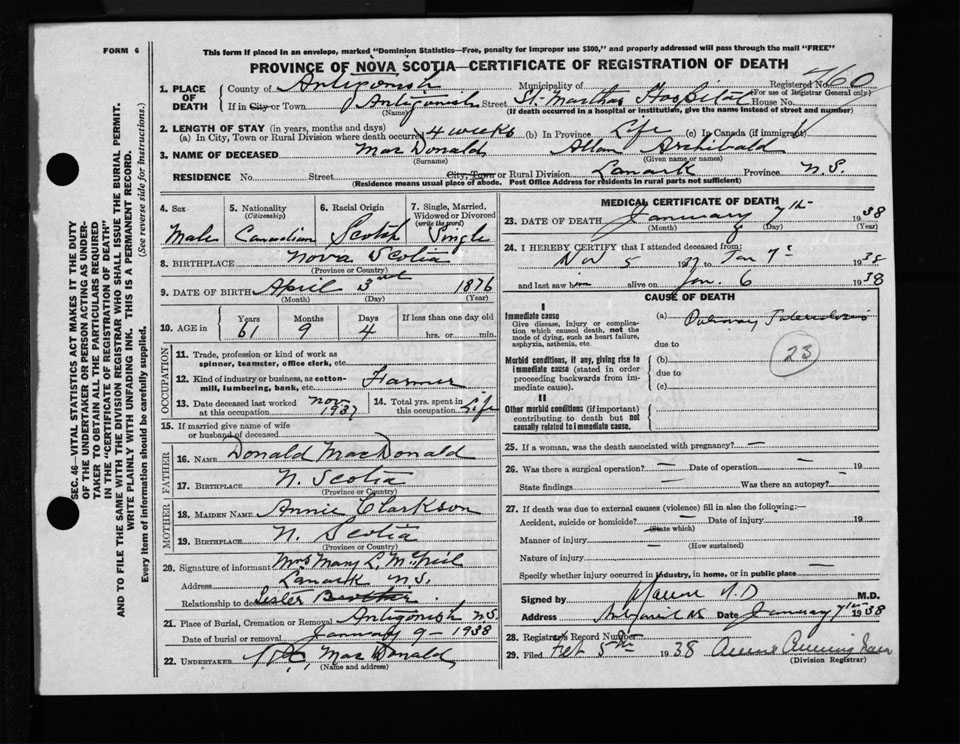 FORM 6
This form if placed in an envelope, marked "Dominion Statistics—Free, penalty for improper use $300," and properly addressed will pass through the mail "FREE"
PROVINCE OF NOVA SCOTIA—CERTIFICATE OF REGISTRATION OF DEATH
1. PLACE OF DEATH
County of Antigonish Municipality of Registered No. 760
(For use of Registrar General only)
If in City or Town Antigonish Street St. Marthas Hospital House No.
(Name) (If death occurred in a hospital or institution, give the name instead of street and number)
2. LENGTH OF STAY (in years, months and days)
(a) In City, Town or Rural Division where death occurred 4 weeks (b) In Province Life (c) In Canada (if immigrant)
3. NAME OF DECEASED MacDonald Allan Archibald
(Surname) (Given name or names)
RESIDENCE No. Street City, Town or Rural Division Lanark Province N.S.
(Residence means usual place of abode. Post Office Address for residents in rural parts not sufficient)
4. Sex Male
5. Nationality (Citizenship) Canadian
6. Racial Origin Scotch
7. Single, Married, Widowed or Divorced (write the word) Single
8. BIRTHPLACE Nova Scotia
(Province or Country)
9. DATE OF BIRTH April 3rd 1876
(Month) (Day) (Year)
10. AGE in Years 61 Months 9 Days 4 If less than one day old hrs. or min.
OCCUPATION
11. Trade, profession or kind of work as spinner, teamster, office clerk, etc.
12. Kind of industry or business, as cotton-mill, lumbering, bank, etc. Farmer
13. Date deceased last worked at this occupation Nov 1937
14. Total yrs. spent in this occupation Life
15. If married give name of wife or husband of deceased
FATHER
16. NAME Donald MacDonald
17. BIRTHPLACE N. Scotia
(Province or Country)
MOTHER
18. MAIDEN NAME Annie Clarkson
19. BIRTHPLACE N. Scotia
(Province or Country)
20. Signature of informant Mrs Mary L. McNeil
Address Lanark N.S.
Relationship to deceased Brother
21. Place of Burial, Cremation or Removal Antigonish N.S.
Date of burial or removal January 9 - 1938
22. UNDERTAKER MacDonald
(Name and address)
MEDICAL CERTIFICATE OF DEATH
23. DATE OF DEATH January 7th 1938
(Month) (Day) (Year)
24. I HEREBY CERTIFY that I attended deceased from:
Nov 5 1937 to Jan 7 1938
and last saw him alive on Jan. 6 1938
CAUSE OF DEATH
I
Immediate cause
Give disease, injury or complication which caused death, not the mode of dying, such as heart failure, asphyxia, asthenia, etc.
(a) Pulmonary Tuberculosis
due to
23
Morbid conditions, if any, giving rise to immediate cause (stated in order proceeding backwards from immediate cause).
(b)
due to
(c)
II
Other morbid conditions (if important) contributing to death but not causally related to immediate cause.
25. If a woman, was the death associated with pregnancy? —
26. Was there a surgical operation? — Date of operation — 19
State findings — Was there an autopsy? —
27. If death was due to external causes (violence) fill in also the following:—
Accident, suicide or homicide? — Date of injury 19
(State which)
Manner of injury —
(How sustained)
Nature of injury
Specify whether injury occurred in industry, in home, or in public place —
Signed by M.D. M.D.
Address Date January 7th 1938
28. Registrar's Record Number
29. Filed Feb 5th 1938
(Division Registrar)
SEC. 46—VITAL STATISTICS ACT MAKES IT THE DUTY
OF THE UNDERTAKER OR PERSON ACTING AS UNDER-
TAKER TO OBTAIN ALL THE PARTICULARS REQUIRED
IN THE "CERTIFICATE OF REGISTRATION OF DEATH"
AND TO FILE THE SAME WITH THE DIVISION REGISTRAR WHO SHALL ISSUE THE BURIAL PERMIT.
WRITE PLAINLY WITH UNFADING INK. THIS IS A PERMANENT RECORD.
Every item of information should be carefully supplied. (See reverse side for instructions.)